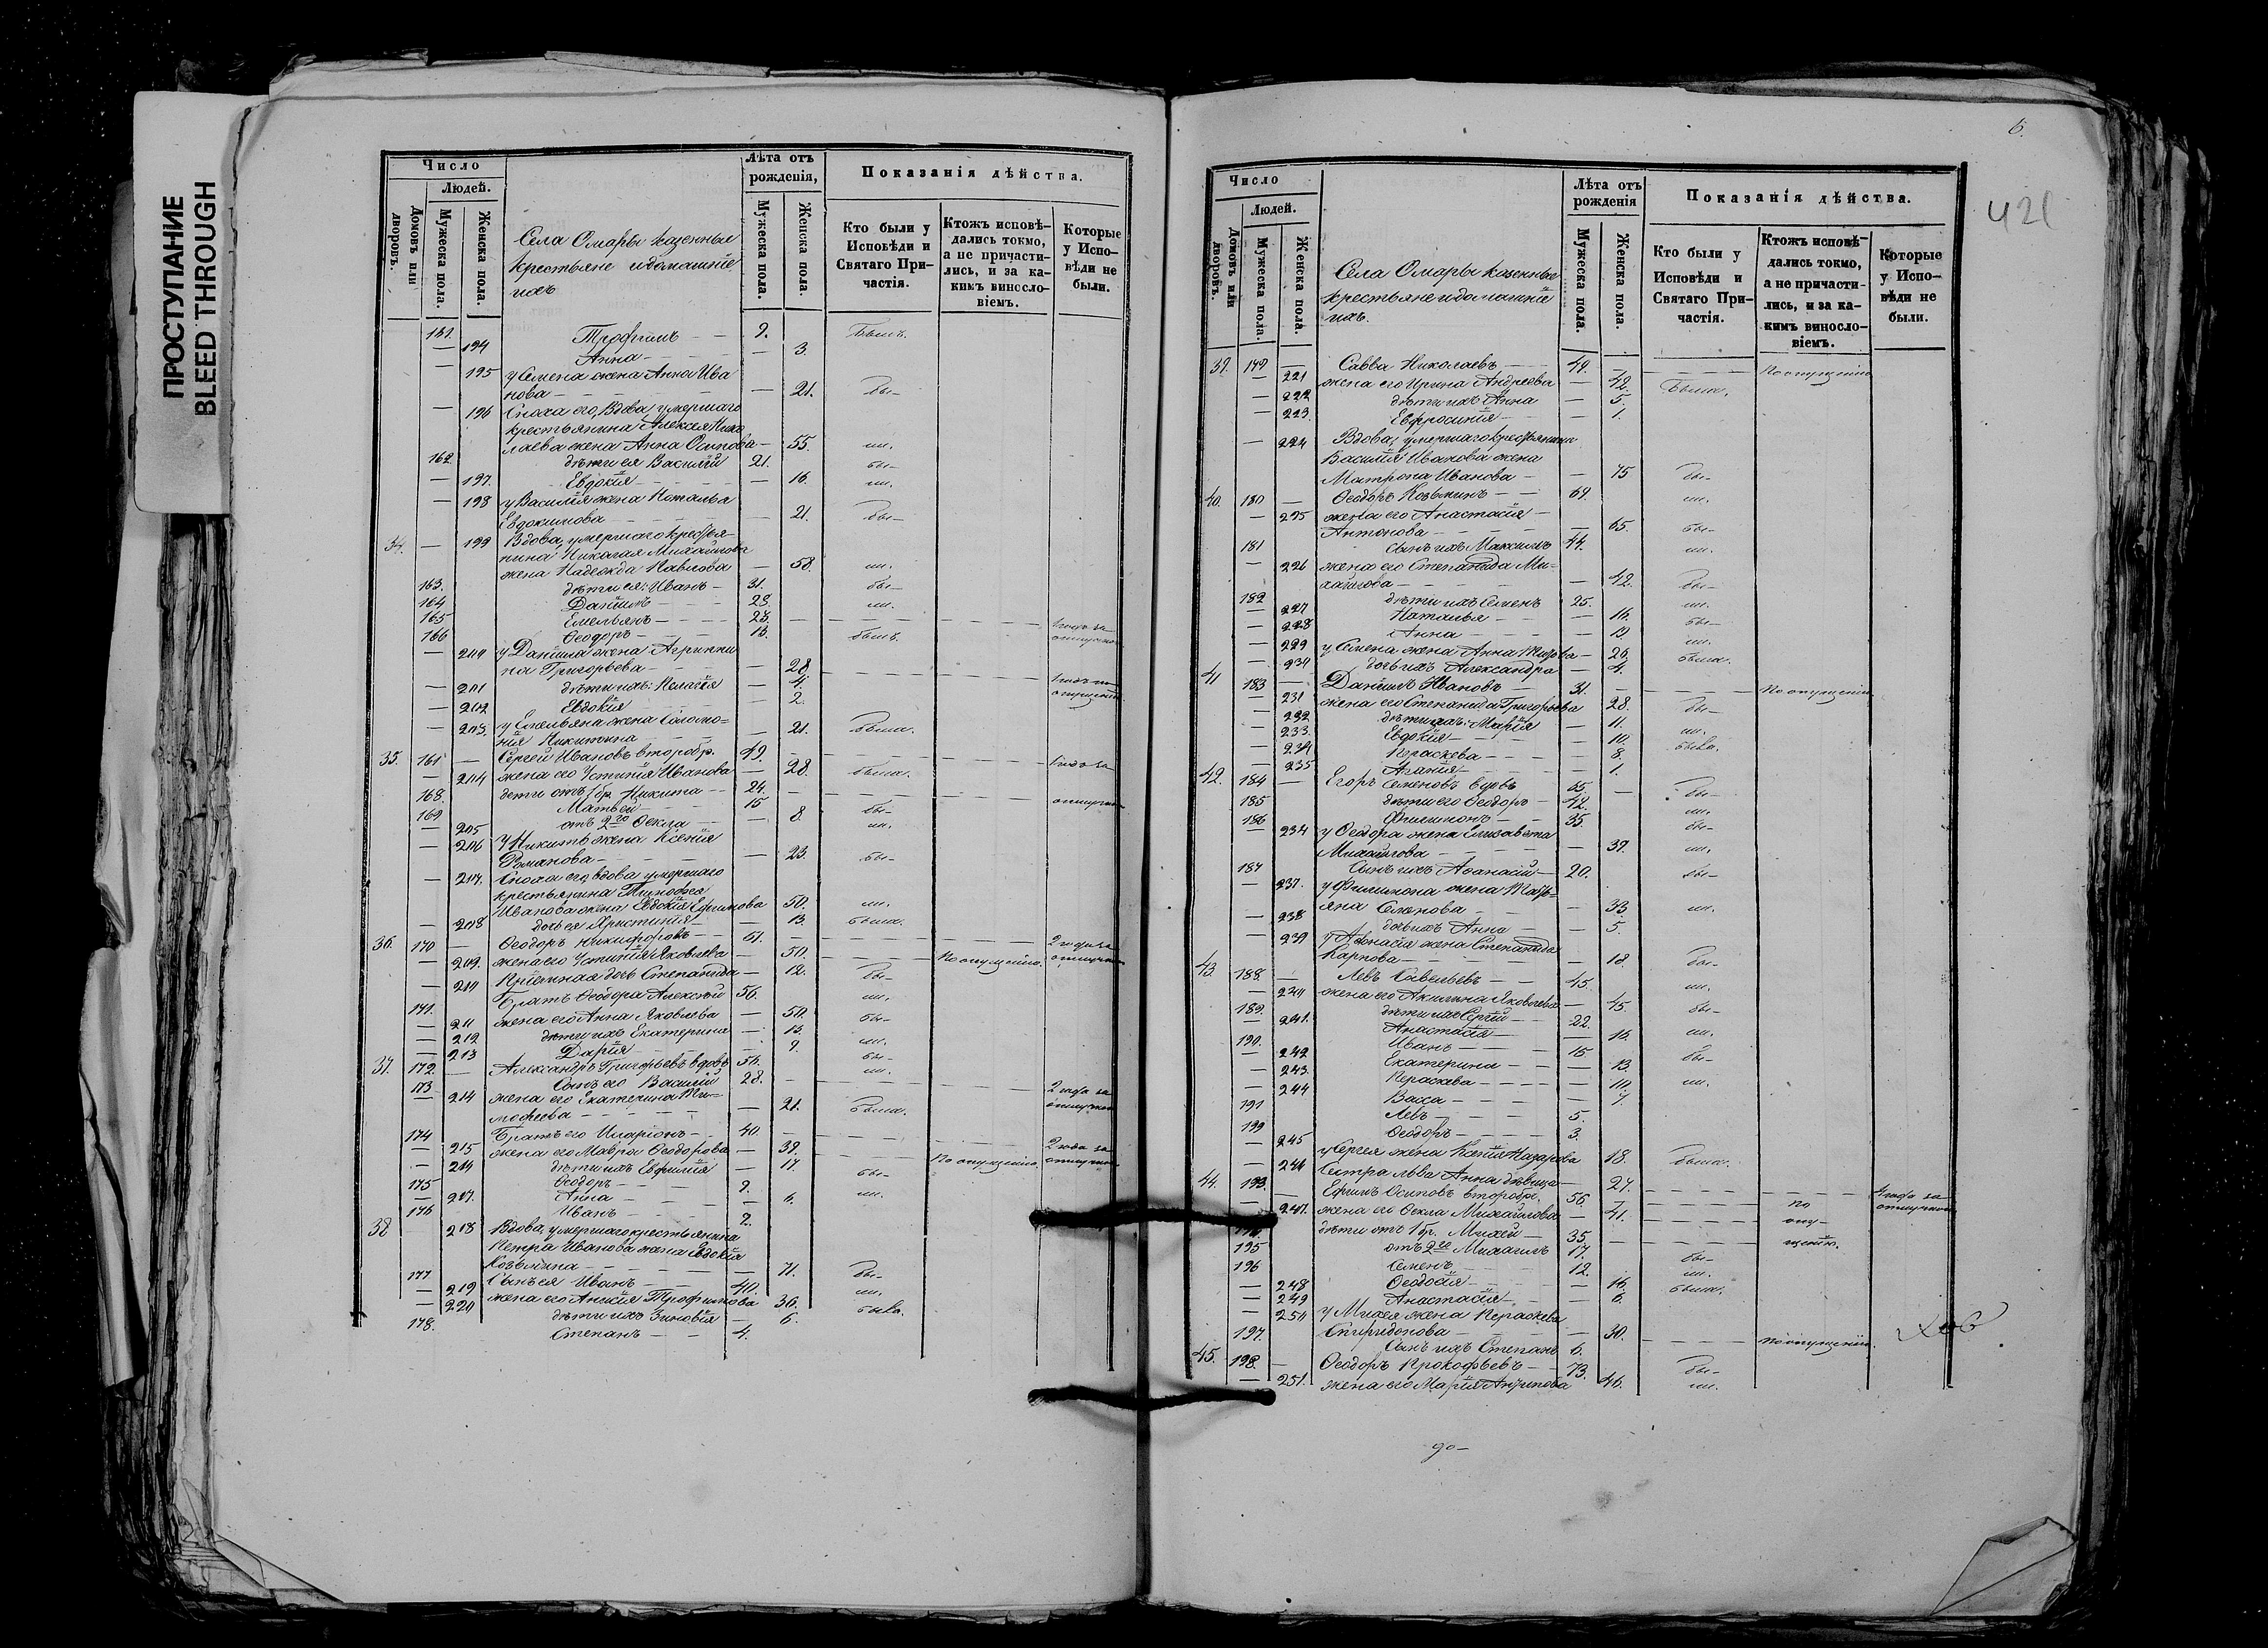 ПРОСТУПАНИЕ
BLEED THROUGH
Число
Людей.
Домовъ или дворовъ.
Мужеска пола.
Женска пола.
Села Омары казенные
крестьяне и домашніе
ихъ
Лѣта отъ рожденія,
Мужеска пола.
Женска пола.
Показанія дѣйства.
Кто были у Исповѣди и Святаго Причастія.
Ктожъ исповѣдались токмо, а не причастились, и за какимъ винословіемъ.
Которые у Исповѣди не были.
Трофимъ — 9. былъ.
— 194 Анна — — 3.
— 195 у Семена жена Анна Ива
нова — — 21. бы–
— 196 Сноха его, Вдова умершаго
крестьянина Алексея Нико
лаева жена Анна Осипова — 55. ли.
162 дѣти ея Василій 21. бы–
— 197. Евдокія — 16. ли.
— 198 у Василія жена Наталья
Евдокимова — — 21. бы–
34. — 199 Вдова, умершаго крестья-
нина Николая Михайлова
жена Надежда Павлова — 58. ли.
163. дѣти ея: Иванъ — 31. бы–
164 Даніилъ — 28. ли.
165 Емельянъ — 23.
166 Ѳеодоръ — 13. былъ.
— 200 у Даніила жена Агриппи
на Григорьева — — 28.
— 201 дѣти ихъ: Пелагія — 4.
— 202 Евдокія — 2.
— 203. у Емельяна жена Соломо=
нія Никитина — 21. была.
35. — Сергей Ивановъ второбр. 49.
— 204 жена его Устинія Иванова — 28. была.
168. дети отъ 1 бр. Никита — 24.
169 Матвей — 15 бы–
— 205 отъ 2го Ѳекла — 8. ли.
— 206 у Никиты жена Ксенія
Романова — — 23. бы–
— 207. Сноха его, вдова умершаго
крестьянина Тимофея
Иванова жена Евдокія Ефимова 50. ли.
— 208 дочь ея Христинія — 13. была.
36. 170 — Ѳеодоръ Никифоровъ — 61. 2 года за
— 209. жена его Устинія Яковлева — 50. По опущенію. отлучкою
— 210 Пріемная дочь Степанида — 12. бы–
171. Братъ Ѳеодора Алексѣй 56. ли.
— 211 жена его Анна Яковлева — 50. бы–
— 212 дѣти ихъ Екатерина — 13. ли.
— 213 Дарія — 9. бы–
37. 172. — Александръ Григорьевъ вдовъ 54. ли.
173 Сынъ его Василій 28. 2 года за
— 214 жена его Екатерина Ти-
мофеева — — 21. была. отлучкою
174 Братъ его Иларіонъ — 40. 2 года за
— 215 жена его Мавра Ѳеодорова — 39. По опущенію. отлучкою
— 216 дѣти ихъ Евфимія — 17. бы–
175 Ѳеодоръ — 9. ли.
— 217. Анна — 6.
176 Иванъ — 2.
38 — 218 Вдова, умершаго крестьянина
Петра Иванова жена Евдокія
Козьмина — — 71. бы–
177 Сынъ ея Иванъ — 40. ли.
— 219 жена его Анисія Трофимова 36. была.
— 220 дѣти ихъ Зиновія — 6.
178. Степанъ — 4.
6.
421
Число
Людей.
Домовъ или дворовъ.
Мужеска пола.
Женска пола.
Села Омары казенные
крестьяне и домашніе
ихъ.
Лѣта отъ рожденія
Мужеска пола.
Женска пола.
Показанія дѣйства.
Кто были у Исповѣди и Святаго Причастія.
Ктожъ исповѣдались токмо, а не причастились, и за какимъ винословіемъ.
Которые у Исповѣди не были.
39. 179 — Савва Николаевъ — 49. По опущенію
— 221 жена его Ирина Андреева — 42. была.
— 222 дѣти ихъ Анна — 5.
— 223 Евфросинія — 1.
— 224 Вдова, умершаго крестьянина
Василія Иванова жена
Матрона Иванова — 75 бы–
40. 180 — Ѳеодоръ Козьминъ — 69. ли.
— 225 жена его Анастасія —
Антонова — — 65. бы–
181 Сынъ ихъ Максимъ 44. ли.
— 226 жена его Степанида Ми-
хайлова — — 42. бы–
182 дѣти ихъ Семенъ 25. ли.
— 227 Наталья — 16. бы–
— 228 Анна — 13. ли.
— 229 у Семена жена Анна — 25. была.
— 230 дочь ихъ Александра — 4.
41 183 — Даніилъ Ивановъ — 31. По опущенію.
— 231 жена его Степанида Григорьева 28. бы–
— 232 дѣти ихъ: Марія — 11. ли.
— 233. Евдокія — 10. была.
— 234 Параскева — 8.
— 235 Агафія — 1.
42. 184 — Егоръ Семеновъ вдовъ 65. бы–
185 дѣти его Ѳеодоръ — 42. ли.
186 Филимонъ — 35. бы–
— у Ѳеодора жена Елизавета
Михайлова — 39. ли.
187 Сынъ ихъ Аѳанасій — 20. бы–
— 237. у Филимона жена Татья-
яна Семенова — 33 ли.
— 238 дочь ихъ Анна — 5.
— 239 у Аѳанасія жена Степанида
Карпова — — 18. бы–
43. 188 — Левъ Савельевъ — 45. ли.
— 240 жена его Акилина Яковлева — 45. бы–
189. дѣти ихъ Сергій — 22. ли.
— 241. Анастасія — 16.
190. Иванъ — 15 бы–
— 242 Екатерина — 13.
— 243. Параскева — 10. ли.
— 244 Васса — 7.
191 Левъ — 5.
199 Ѳеодоръ — 3.
— 245 у Сергея жена Ксенія Назарова 18. была.
— 246 Сестра Льва: Анна дѣвица — 27.
44. 193. — Ефимъ Осиповъ второбр. 56 4 года за отлучкою
— 247. жена его Ѳекла Михайлова — 41. По опу-
дѣти отъ 1 бр. Михей — 35. щенію.
195 отъ 2го Михаилъ 17. бы–
196 Семенъ — 12. ли.
— 248 Ѳеодосія — 16. была.
— 249 Анастасія — 6.
— 250 у Михея жена Параскева
Спиридонова — — 30. По опущенію.
197. Сынъ ихъ Степанъ 6.
45. 198. — Ѳеодоръ Прокофьевъ — 73. бы–
— 251. жена его Марія Антипова 46. ли.
90–